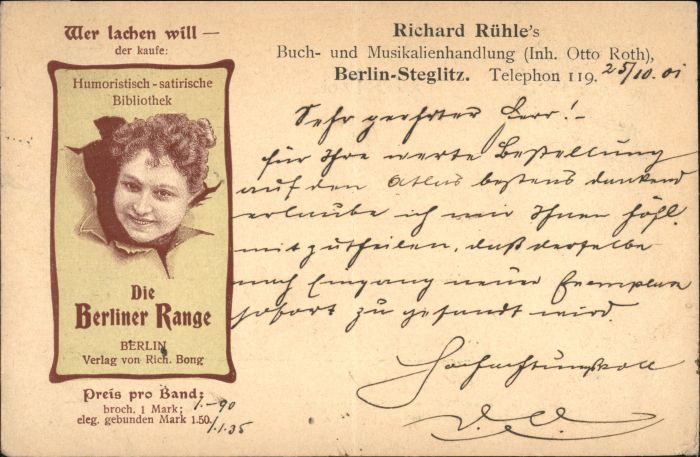 Wer lachen will —
der kaufe:
Humoristisch-satirische
Bibliothek
Die
Berliner Range
BERLIN
Verlag von Rich. Bong
Preis pro Band:
broch. 1 Mark; 1.-90
eleg. gebunden Mark 1.50. /1.35
Richard Rühle's
Buch- und Musikalienhandlung (Inh. Otto Roth),
Berlin-Steglitz. Telephon 119. 25/10. 01
Sehr geehrter Herr! -
für Ihre werte Bestellung
auf den Atlas bestens dankend
erlaube ich mir Ihnen höfl.
mitzutheilen, daß derselbe
nach Eingang neuer Exemplare
sofort zu gesandt wird.
Hochachtungsvoll